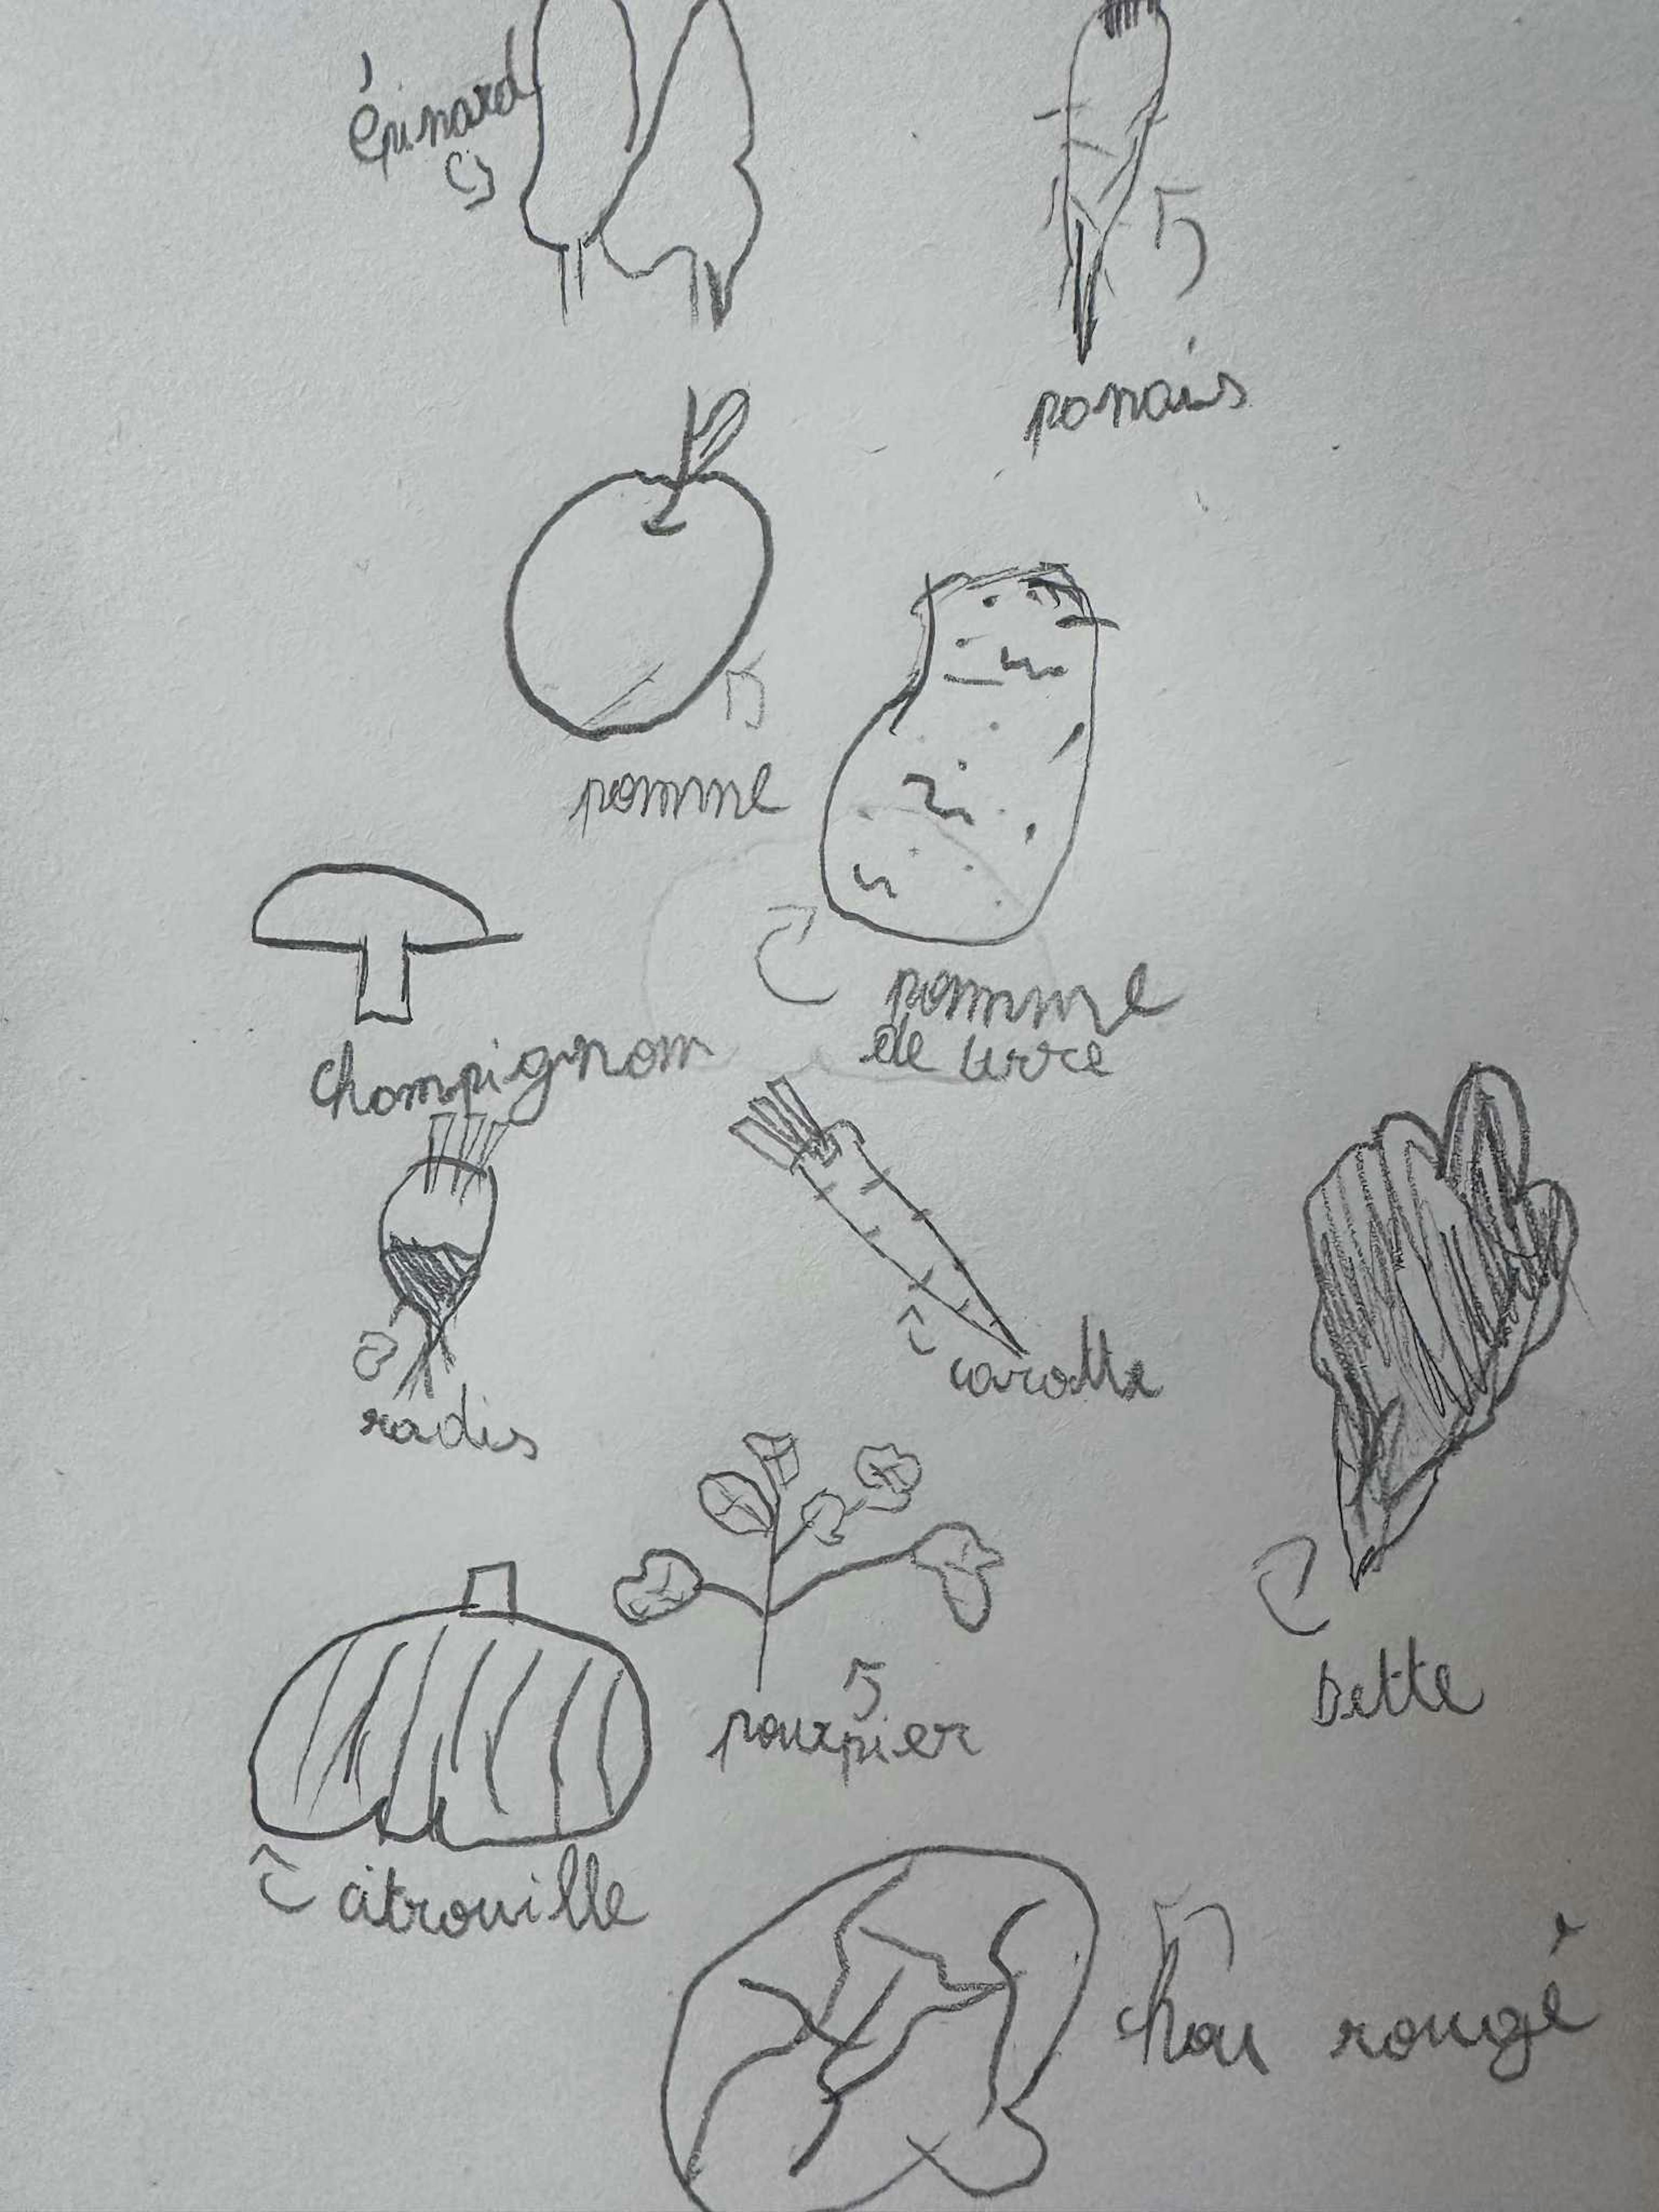 épinard
panais
pomme
pomme
de terre
champignon
radis
carotte
bette
pourpier
citrouille
chou rouge